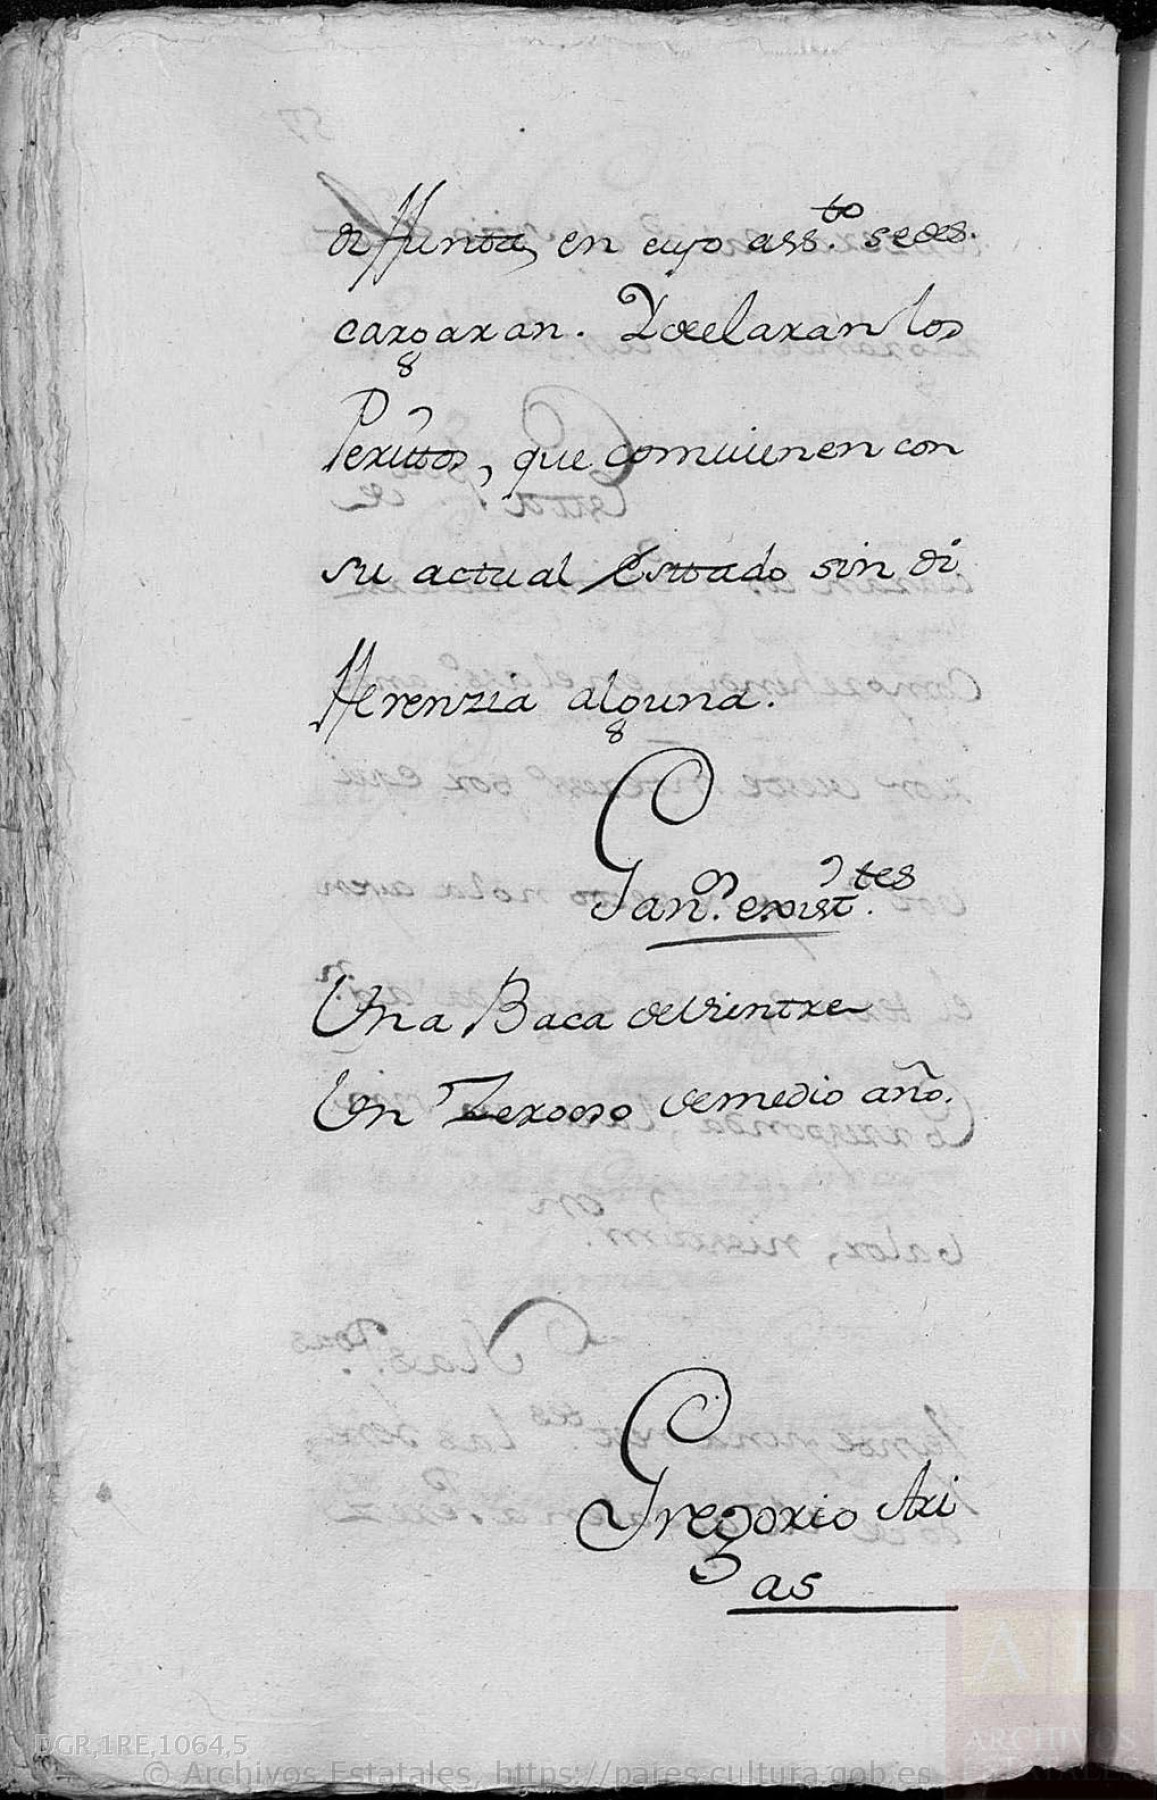 diffuntas, en cuyo ass.to se des.
cargaran. Y declaran los
Perittos, que combienen con
su actual Esttado sin di
fferenzia alguna.
Gan.o exist.tes
Una Baca de Vientre
Un Zerdo de medio año.
Gregorio Ari
as
DGR,1RE,1064,5
© Archivos Estatales, https://pares.cultura.gob.es
AE
ARCHIVOS
ESTATALES